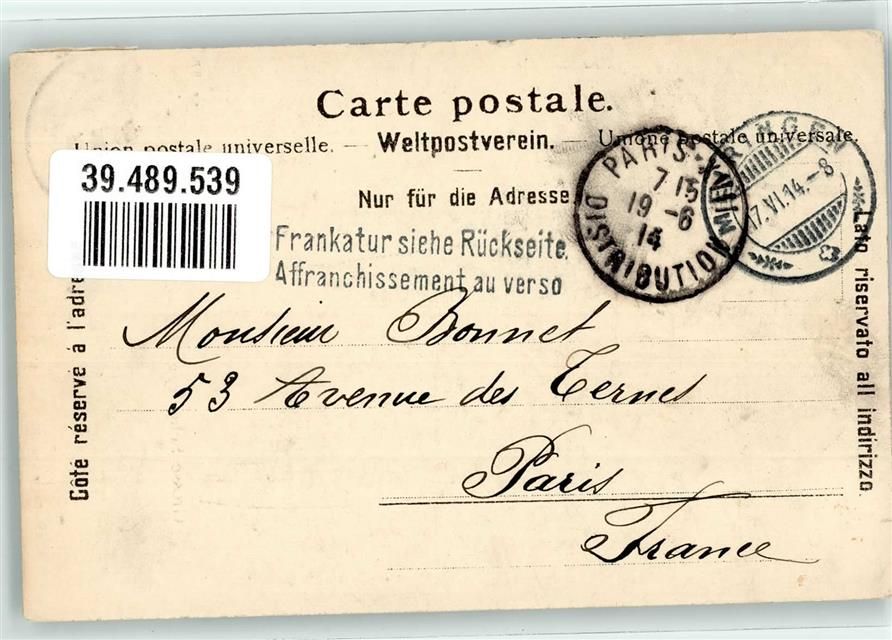 Carte postale.
Union postale universelle. — Weltpostverein. — Unione postale universale.
39.489.539
Nur für die Adresse.
Frankatur siehe Rückseite.
Affranchissement au verso
PARIS
7 15
19 - 6
14
DISTRIBUTION
MEIRINGEN
17.VI.14.-8
Côté réservé á l'adre
Lato riservato all indirizzo.
Monsieur Bonnet
53 Avenue des Ternes
Paris
France